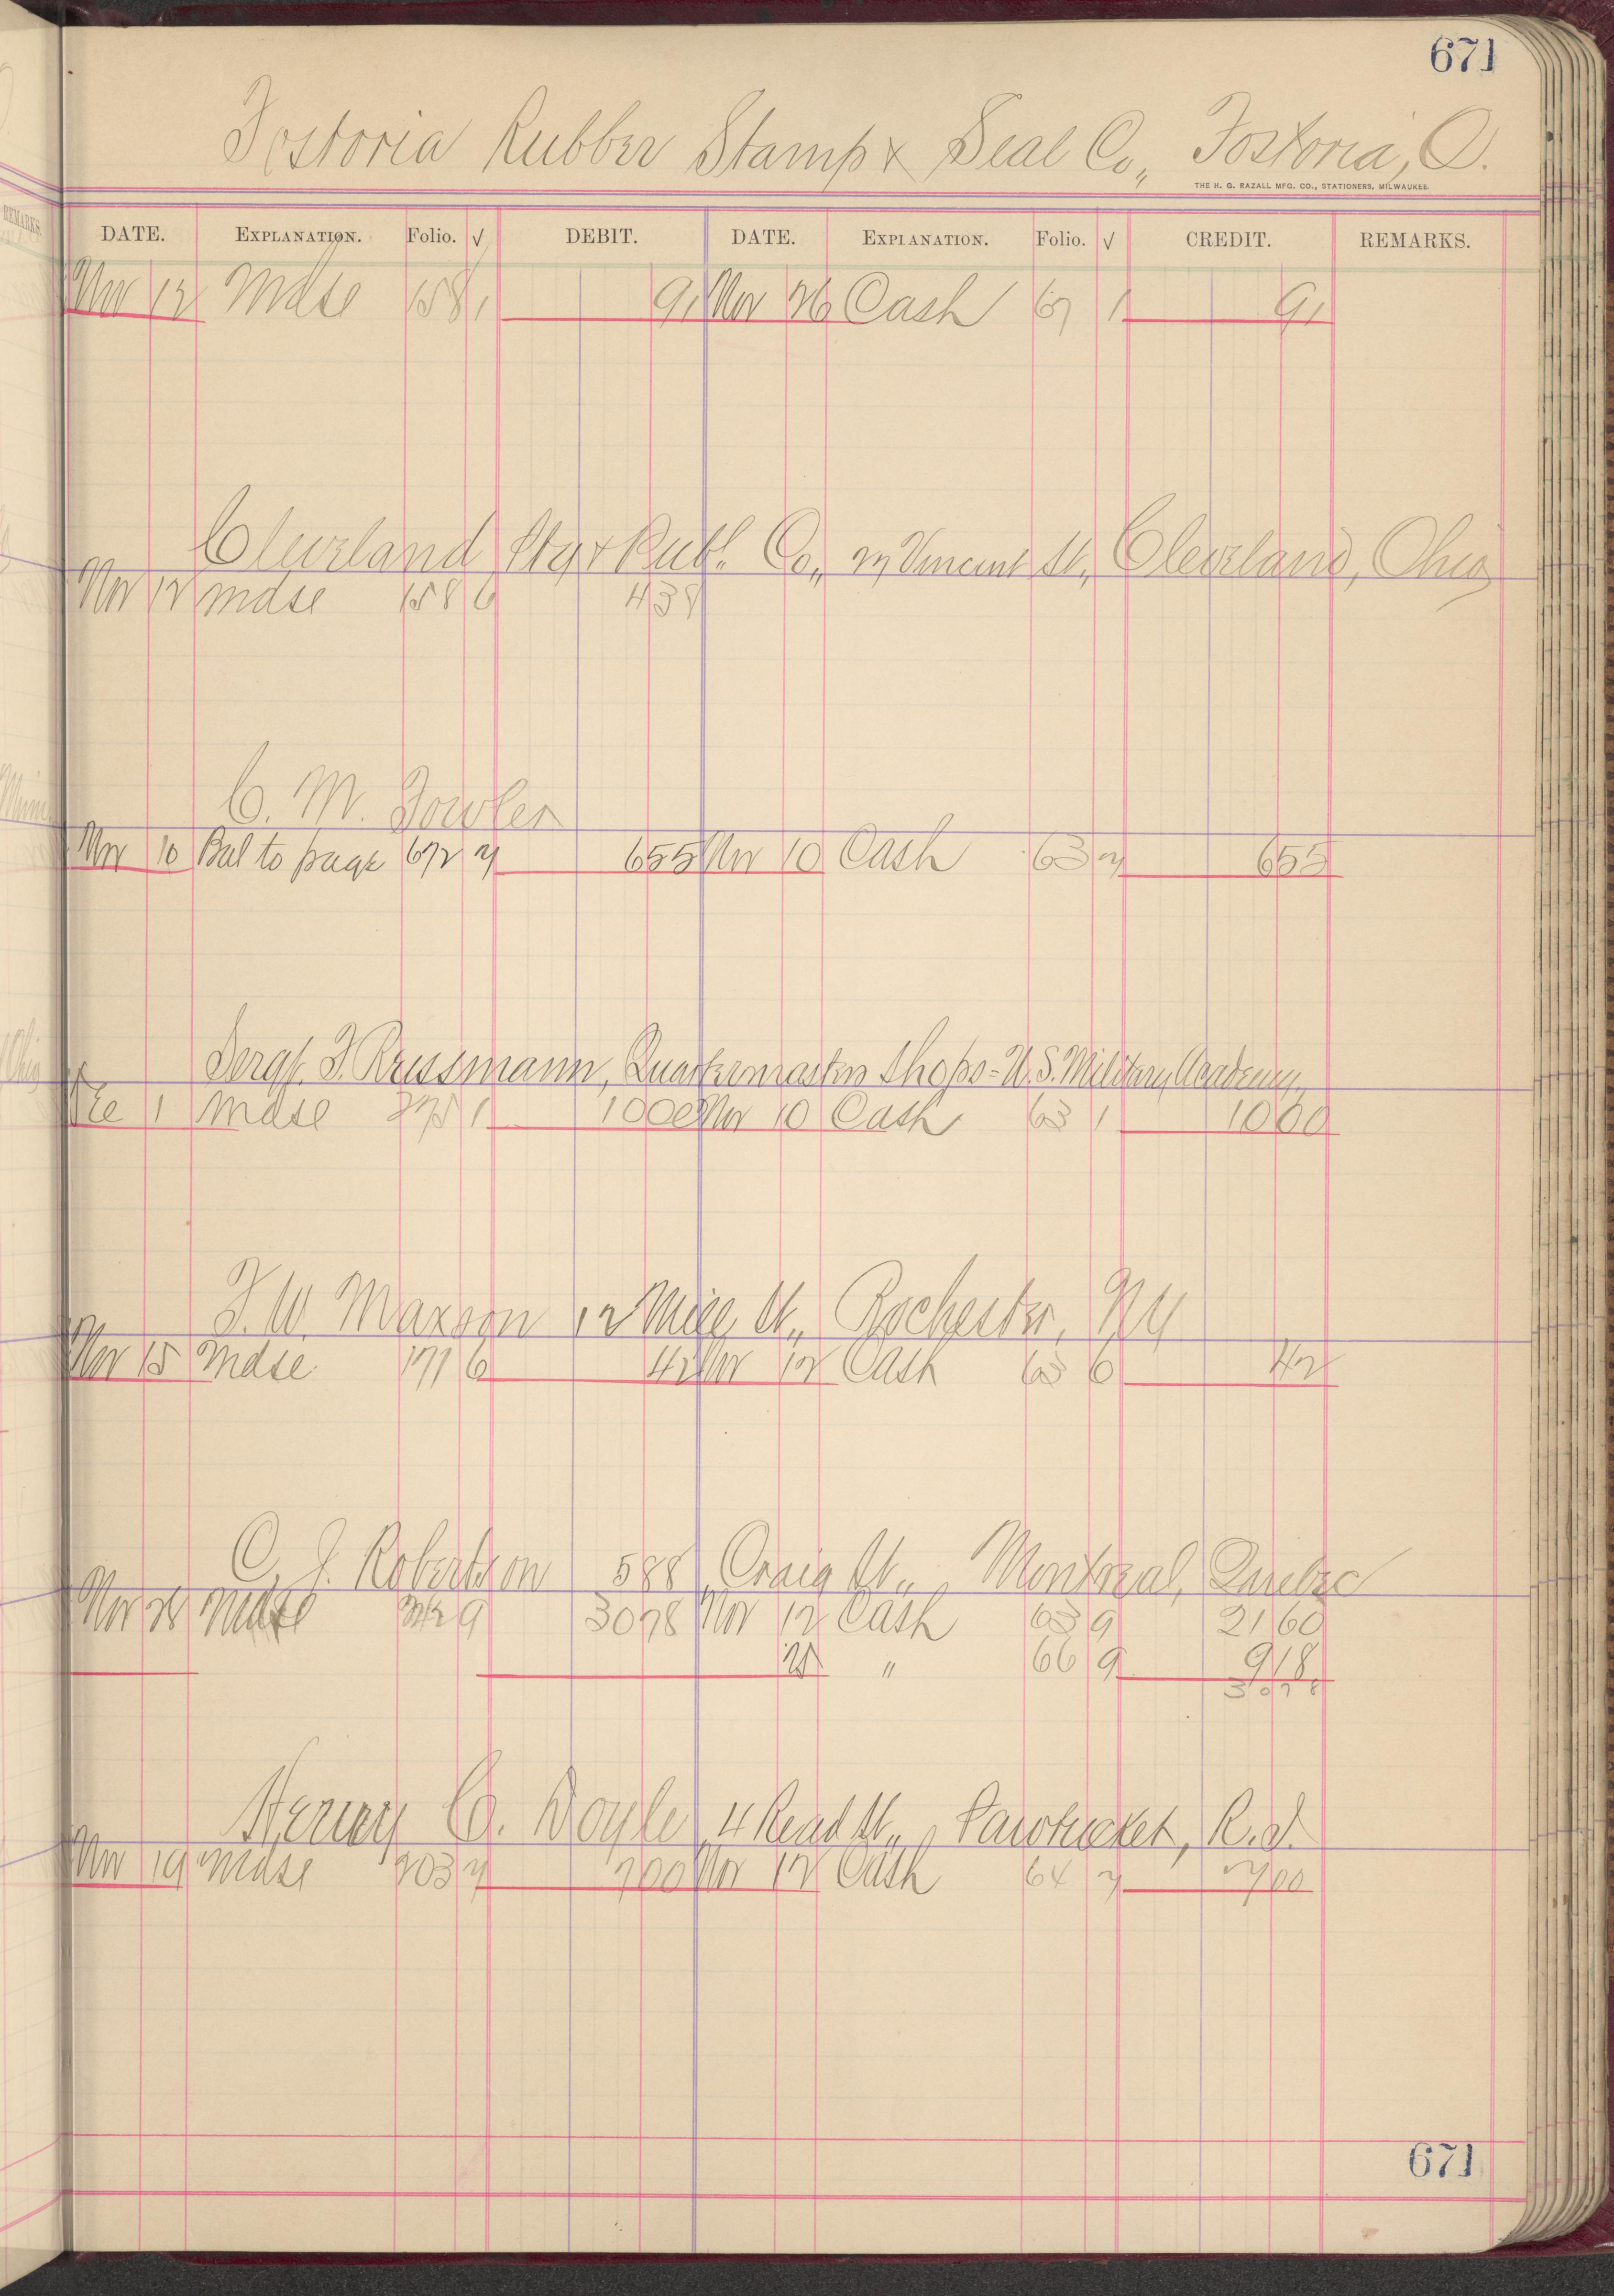 671
Fostoria Rubber Stamp & Seal Co,, Fostoria, O.
THE H. G. RAZALL MFG. CO., STATIONERS, MILWAUKEE.
REMARKS.
DATE. EXPLANATION. Folio. √ DEBIT. DATE. EXPLANATION. Folio. √ CREDIT. REMARKS.
Nov 12 Mdse 158 1 91 Nov 26 Cash 67 1 91
Cleveland Sty & Rub. Co,, Vincent St., Cleveland, Ohio
Nov 12 Mdse 158 6 438
C. M. Fowler
Nov 10 Bal to page 672 7 655 Nov 10 Cash 63 7 655
Sergt. F. Russmann, Quartermasters Shops = U.S. Military Academy,
Dec 1 Mdse 1 1000 Nov 10 Cash 63 1 1000
F. W. Maxson 12 Mill St., Rochester, NY
Nov 15 Mdse 171 6 42 Nov 12 Cash 63 6 42
C. J. Robertson 588 Craig St., Montreal, Quebec
Nov Mdse 9 3078 Nov 12 Cash 63 9 2160
" 66 9 918
3078
Henry C. Doyle 4 Read St,, Pawtucket, R.I.
Nov 19 Mdse 203 7 200 Nov 12 Cash 64 7 200
671